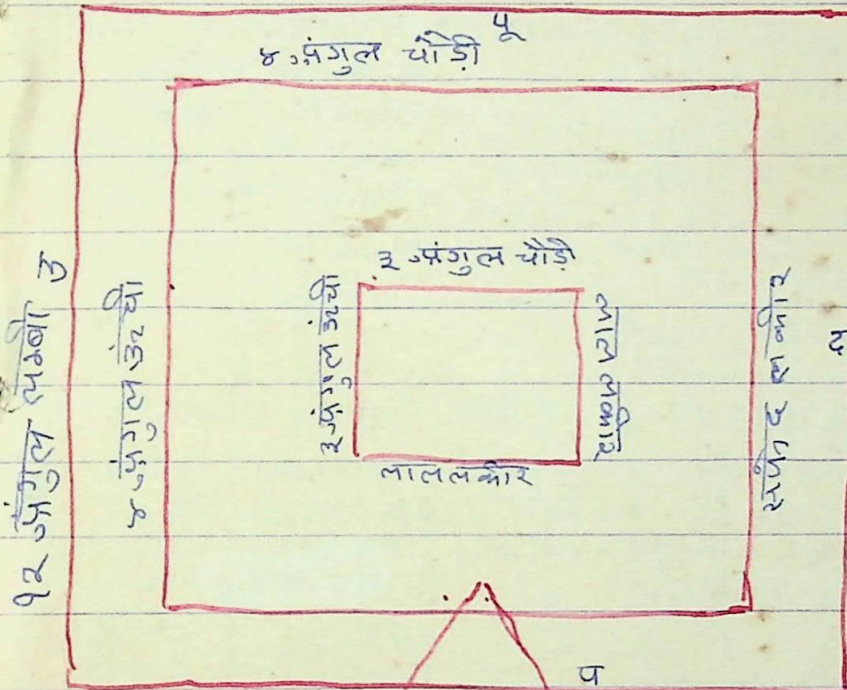 पू
४ अंगुल चौड़ी
१२ अंगुल लम्बी उ
४ अंगुल उंची
३ अंगुल चौड़ी
३ अंगुल उंची
लाल लकीर
लाल लकीर
सफेद लकीर
द
प